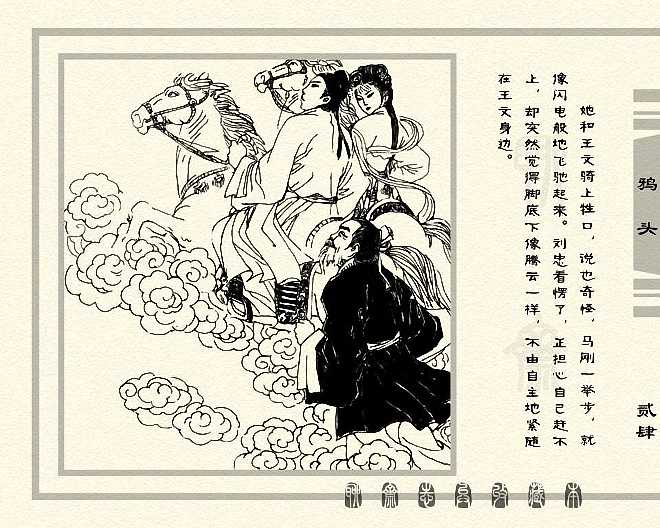 鸦头
贰肆
她和王文骑上牲口，说也奇怪，马刚一举步，就
像闪电般地飞驰起来。刘忠看愣了，正担心自己赶不
上，却突然觉得脚底下像腾云一样，不由自主地紧随
在王文身边。